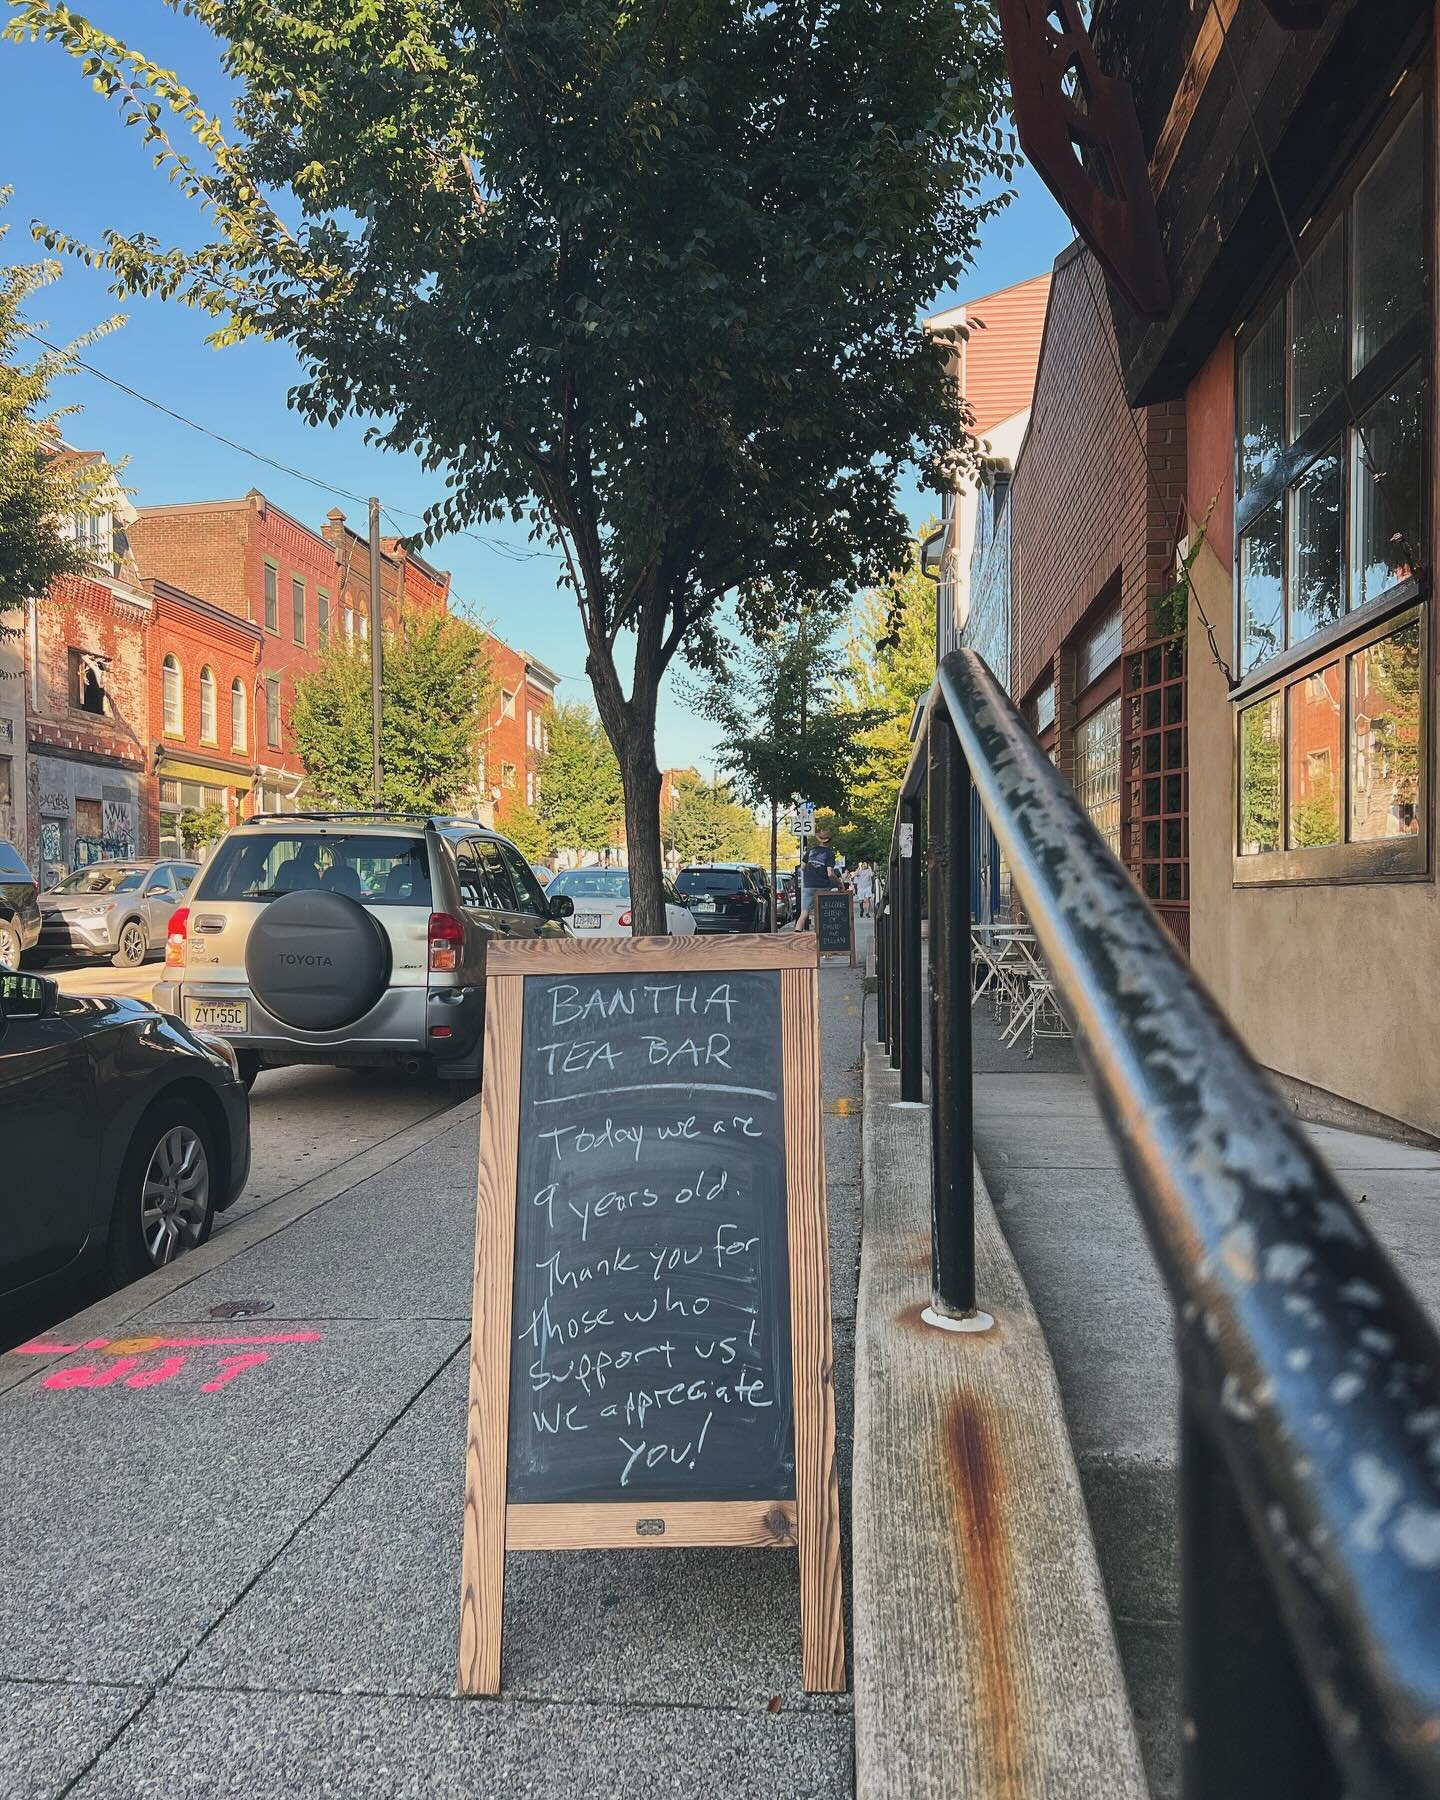 BANTHA
TEA BAR
Today we are
9 years old.
Thank you for
those who
support us!
We appreciate
you!
TOYOTA
ZYT•55C
25
WELCOME